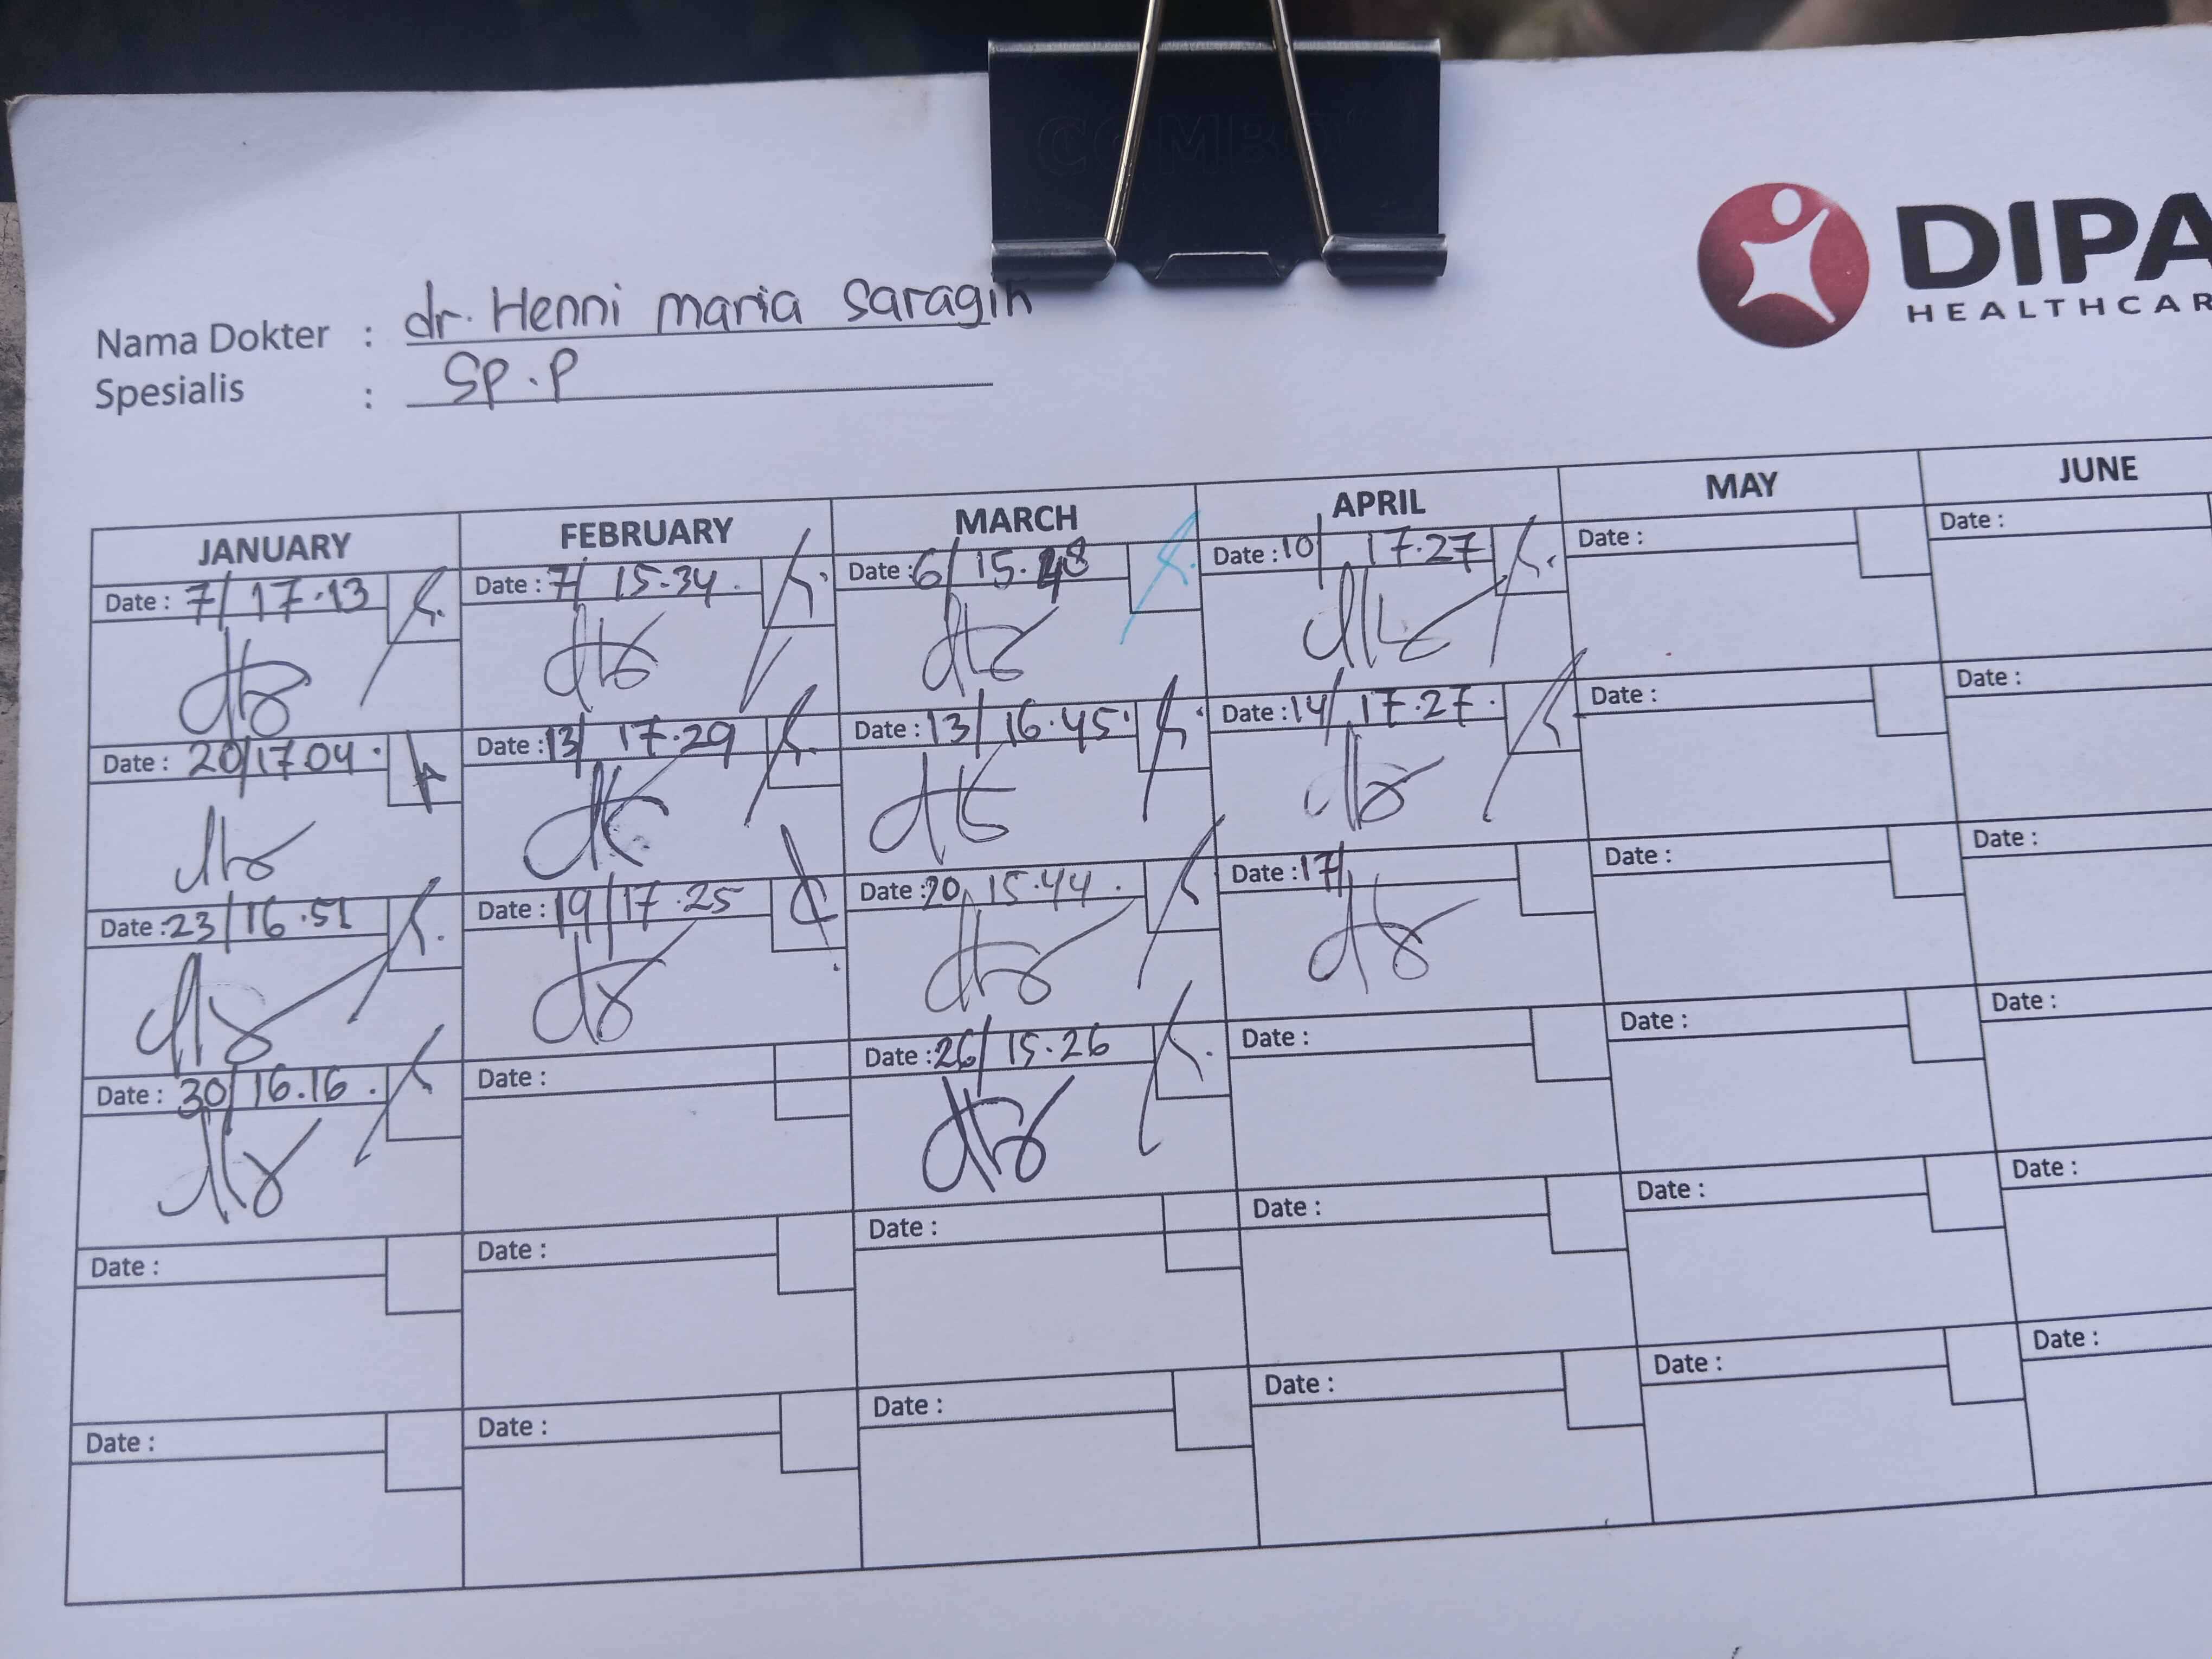 COMBO
DIPA
HEALTHCAR
Nama Dokter : dr. Henni maria Saragih
Spesialis : Sp.P
JANUARY FEBRUARY MARCH APRIL MAY JUNE
Date : 7/ 17.13 Date : 7/ 15.34. Date : 6/ 15.48 Date : 10/ 17.27 Date : Date :
Date : 20/17.04. Date : 13/ 17.29 Date : 13/ 16.45 Date : 14/ 17.27. Date : Date :
Date : 23/16.51 Date : 19/17.25 Date : 20/ 15.44. Date : 17/ Date : Date :
Date : 30/16.16. Date : Date : 26/ 15.26 Date : Date : Date :
Date : Date : Date : Date : Date : Date :
Date : Date : Date : Date : Date : Date :